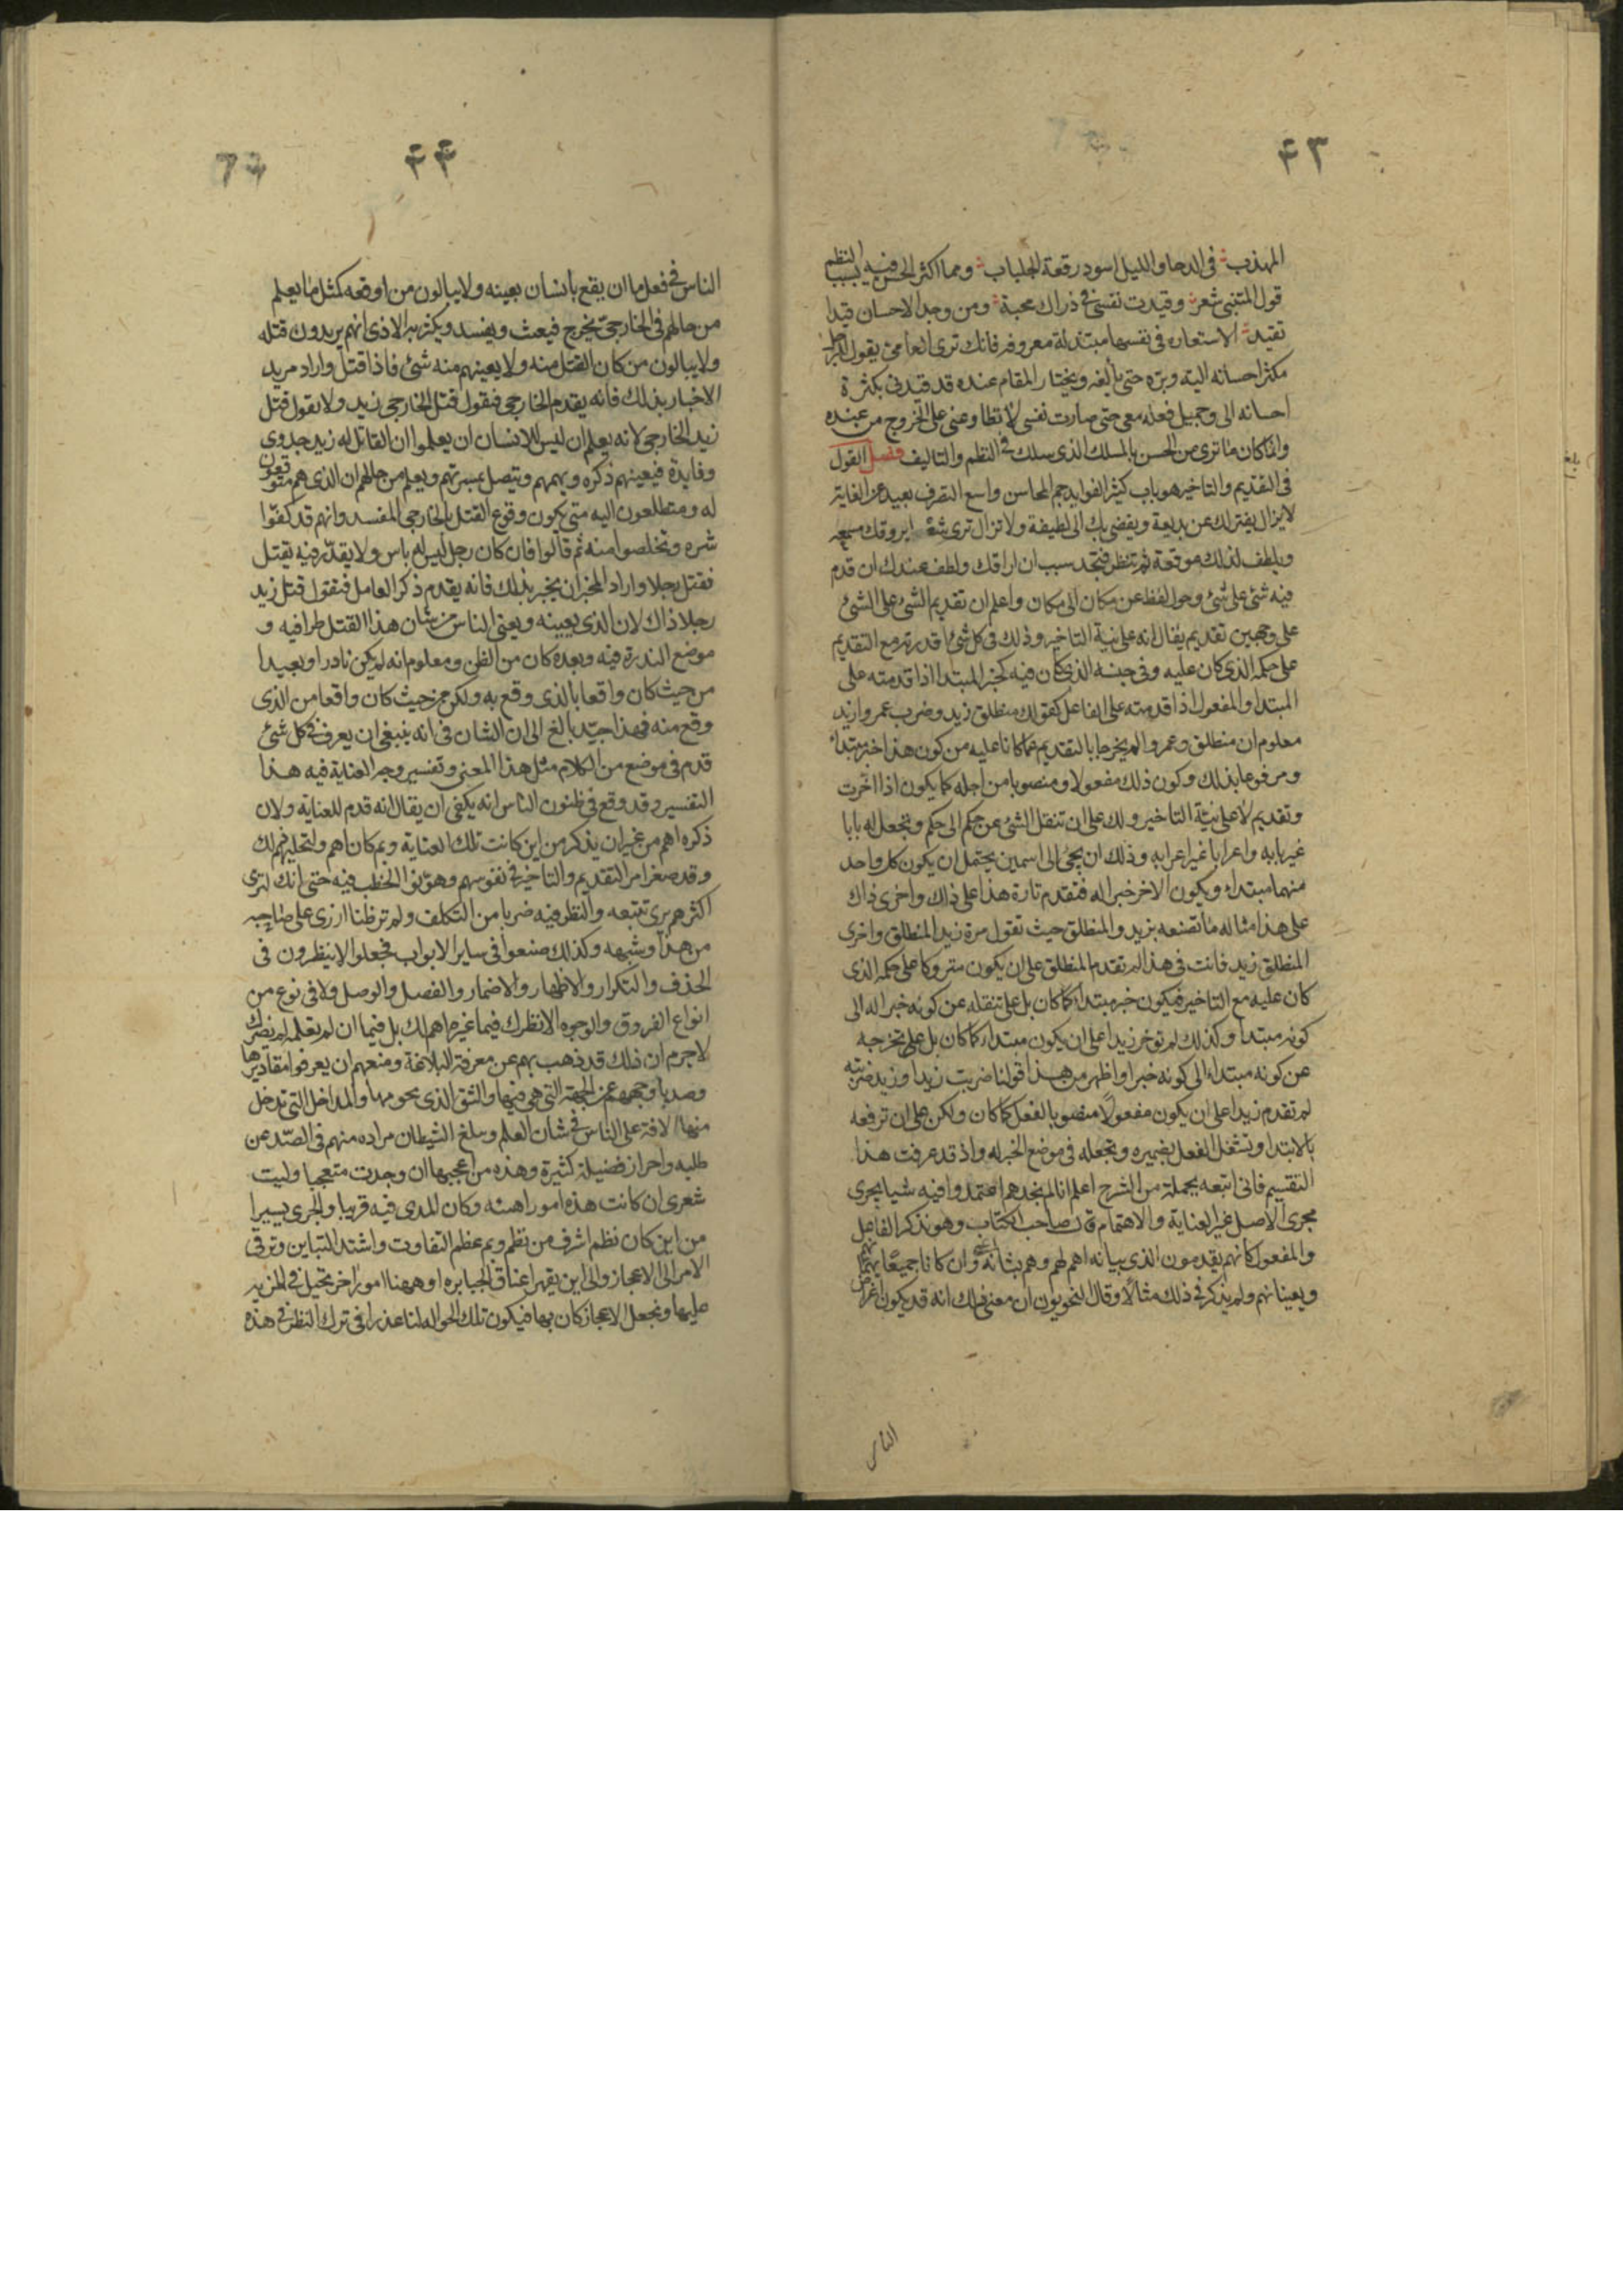 ٤٣
المهذب في الدجا والليل اسود رقعة الجلباب ومما اكثر الحسن فيه بسبب النظم
قول المتنبي شعر وقيدت نفسي في ذراك محبة ومن وجد الاحسان قيدا
تقيد الاستعاره في نفسها مبتذلة معروفة فانك ترى العامي يقول للرجل
يكثر احسانه اليه وبره حتى يألفه ويختار المقام عنده قد قيدني بكثرة
احسانه الى وجميل فعله معي حتى صارت نفسي لا تطاوعني على الخروج من عنده
وانما كان ما ترى من الحسن بالمسلك الذي سلك في النظم والتاليف فصل القول
في التقديم والتاخير هو باب كثير الفوايد جم المحاسن واسع التصرف بعيد الغاية
لا يزال يفتر لك عن بديعة ويفضي بك الى لطيفة ولا تزال ترى شعرا يروقك مسمعه
ويلطف لديك موقعة ثم تنظر فتجد سبب ان راقك ولطف عندك ان قدم
فيه شئ على شئ وحول لفظ عن مكان الى مكان واعلم ان تقديم الشئ على الشئ
على وجهين تقديم يقال انه على نية التاخير وذلك في كل شئ اقررته مع التقديم
على حكمه الذي كان عليه وفي جنسه الذي كان فيه كخبر المبتدا اذا قدمته على
المبتدا والمفعول اذا قدمته على الفاعل كقولك منطلق زيد وضرب عمروا زيد
معلوم ان منطلق وعمروا لم يخرجا بالتقديم عما كانا عليه من كون هذا خبر مبتداء
ومرفوعا بذلك وكون ذلك مفعولا ومنصوبا من اجله كما يكون اذا اخرت
وتقديم لا على نية التاخير ولكن على ان تنقل الشئ عن حكم الى حكم وتجعل له بابا
غير بابه واعرابا غير اعرابه وذلك ان يجئ الى اسمين يحتمل ان يكون كل واحد
منهما مبتداء ويكون الاخر خبرا له فتقدم تارة هذا على ذاك واخرى ذاك
على هذا مثاله ما تصنعه بزيد والمنطلق حيث تقول مرة زيد المنطلق واخرى
المنطلق زيد فانت في هذا لم تقدم المنطلق على ان يكون متروكا على حكمه الذي
كان عليه مع التاخير فيكون خبر مبتداء كما كان بل على تنقله عن كونه خبرا له الى
كونه مبتدا وكذلك لم توخر زيدا على ان يكون مبتداء كما كان بل على تخرجه
عن كونه مبتداء الى كونه خبرا واظهر من هذا قولنا ضربت زيدا وزيد ضربته
لم تقدم زيدا على ان يكون مفعولا منصوبا بالفعل كما كان ولكن على ان ترفعه
بالابتدا وتشغل الفعل بضميره وتجعله في موضع الخبر له واذ قد عرفت هذا
التقسيم فاني اتبعه بجملة من الشرح اعلم انا لم نجدهم اعتمدوا فيه شيا يجري
مجرى الاصل غير العناية والاهتمام قال صاحب الكتاب وهو يذكر الفاعل
والمفعول كانهم يقدمون الذي بيانه اهم لهم وهم بشانه وان كانا جميعا يهمانهم
ويعنيانهم ولم يذكر في ذلك مثالا وقال النحويون ان معنى ذلك انه قد يكون اغراض
الناس
٤٤
الناس في فعل ما ان يقع بانسان بعينه ولا يبالون من اوقعه كمثل ما يعلم
من حالهم في الخارجي يخرج فيعث ويفسد ويكثر به الاذى انهم يريدون قتله
ولا يبالون من كان القتل منه ولا يعينهم منه شئ فاذا قتل واراد مريد
الاخبار بذلك فانه يقدم الخارجي فيقول قتل الخارجي زيد ولا يقول قتل
زيد الخارجي لانه يعلم ان ليس للانسان ان يعلموا ان القاتل له زيد جدوى
وفايدة فيعينهم ذكره ويهمهم ويتصل بمسرتهم ويعلم من حالهم ان الذي هم متوقعون
له ومتطلعون اليه متى يكون وقوع القتل بالخارجي المفسد وانهم قد كفوا
شره وتخلصوا منه ثم قالوا فان كان رجل ليس له باس ولا يقدر فيه يقتل
فقتل رجلا واراد المخبر ان يخبر بذلك فانه يقدم ذكر العامل فيقول قتل زيد
رجلا ذاك لان الذي يعينه ويعني الناس من شان هذا القتل طرافيه و
موضع الندرة فيه وبعده كان من الظن ومعلوم انه لم يكن نادرا وبعيدا
من حيث كان واقعا بالذي وقع به ولكن من حيث كان واقعا من الذي
وقع منه فهذا جيد بالغ الى ان الشان في انه ينبغي ان يعرف في كل شئ
قدم في موضع من الكلام مثل هذا المعنى وتفسير وجه العناية فيه هذا
التفسير وقد وقع في ظنون الناس انه يكفي ان يقال انه قدم للعناية ولان
ذكره اهم من غير ان يذكر من اين كانت تلك العناية وبم كان اهم ولتخليهم لك
وقد صغر امر التقديم والتاخير في نفوسهم وهونوا الخطب فيه حتى انك لترى
اكثرهم يرى تتبعه والنظر فيه ضربا من التكلف ولم تر ظنا ازرى على صاحبه
من هذا وشبهه وكذلك صنعوا في ساير الابواب فجعلوا لا ينظرون في
الحذف والتكرار والاظهار والاضمار والفصل والوصل ولا في نوع من
انواع الفروق والوجوه الا نظرك فيما غيره اهم لك بل فيما ان لم تعلمه لم يضرك
لاجرم ان ذلك قد ذهب بهم عن معرفة البلاغة ومنعهم ان يعرفوا مقاديرها
وصد باوجههم عن الجهة التي هي فيها والشق الذي يحومها والمداخل التي تدخل
منها الافة على الناس في شان العلم ويبلغ الشيطان مراده منهم في الصد عن
طلبه واحراز فضيلة كثيرة وهذه من اعجبها ان وجدت متعجبا وليت
شعري ان كانت هذه امورا هينه وكان المدى فيه قريبا والجرى يسيرا
من اين كان نظم اشرف من نظم وبم عظم التفاوت واشتد التباين وترقى
الامر الى الاعجاز والى اين يقهر اعناق الجبابره او ههنا امور اخر تحيل في المزيه
عليها ونجعل الاعجاز كان بها فيكون تلك الحواله لنا عذرا في ترك النظر في هذه